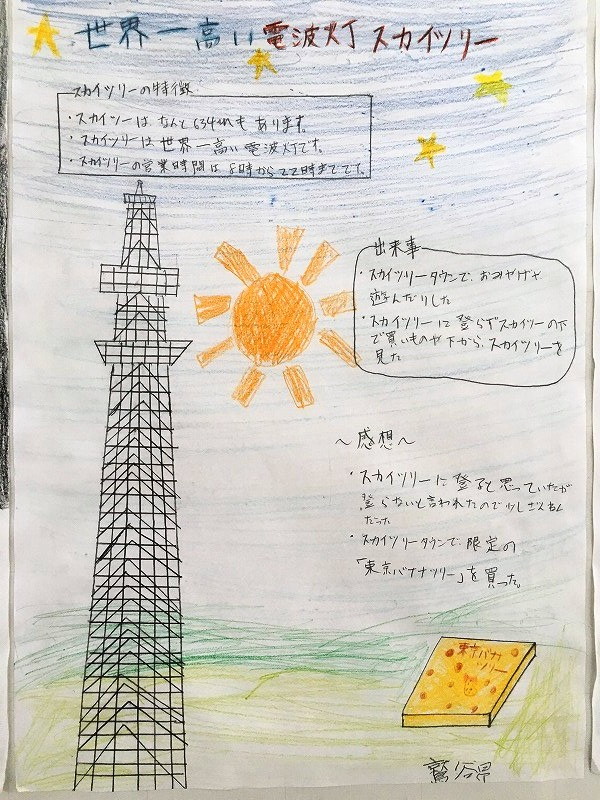 世界一高い電波灯 スカイツリー
スカイツリーの特徴
・スカイツーは なんと 634mも あります。
・スカイツリーは 世界一高い 電波灯です。
・スカイツリーの営業時間は 8時から22時までです。
出来事
・スカイツリータウンで、おみやげや
遊んだりした
・スカイツリーに 登らずスカイツーの下
で買いものや下から、スカイツリーを
見た
〜感想〜
・スカイツリーに 登ると思っていたが
登らないと言われたので少しざんねん
だった
・スカイツリータウンで、限定の
「東京バナナツリー」を買った。
東京バナナ
ツリー
鷲谷昂